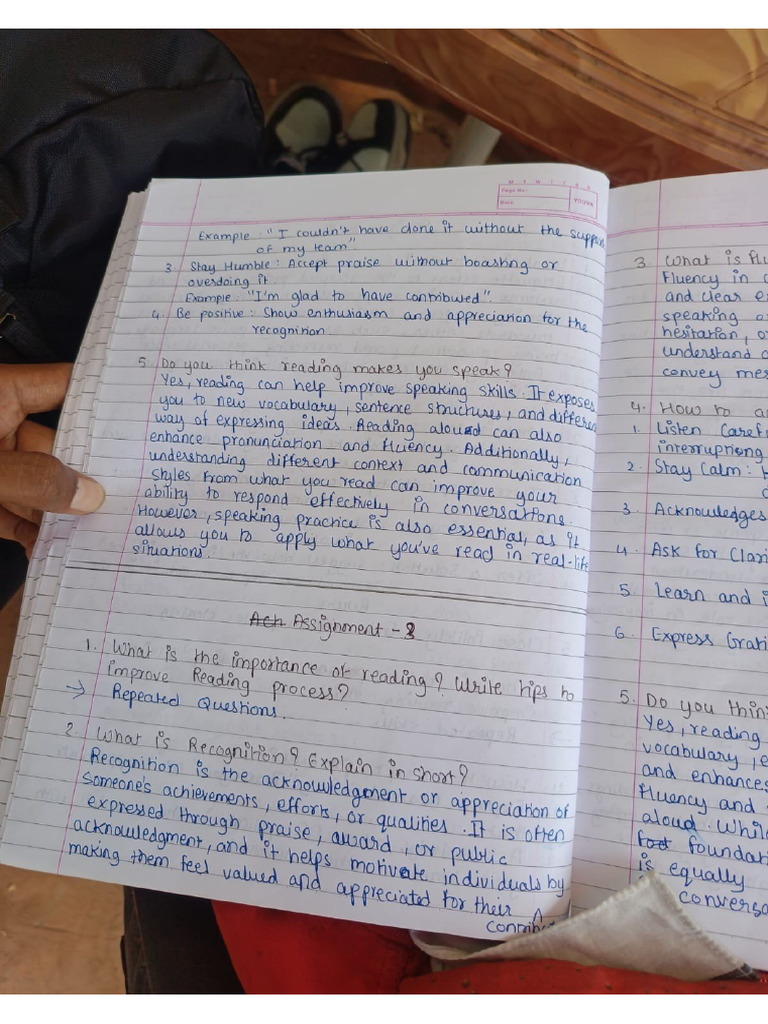 M T W T F S S
Page No.:
Date:
YOUVA
Example : "I couldn't have done it without the suppor
of my team".
3. Stay Humble : Accept praise without boasting or
overdoing it.
Example : "I'm glad to have contributed".
4. Be positive : Show enthusiasm and appreciation for the
recognition.
5. Do you think reading makes you speak?
Yes, reading can help improve speaking skills. It exposes
you to new vocabulary, sentence structures, and different
way of expressing ideas. Reading aloud can also
enhance pronunciation and fluency. Additionally,
understanding different context and communication
styles from what you read can improve your
ability to respond effectively in conversations.
However, speaking practice is also essential, as it
allows you to apply what you've read in real-life
situations.
Ach Assignment - 3
1. What is the importance of reading? Write tips to
improve Reading process?
→ Repeated Questions.
2. What is Recognition? Explain in short?
Recognition is the acknowledgment or appreciation of
someone's achievements, efforts, or qualities. It is often
expressed through praise, award, or public
acknowledgment, and it helps motivate individuals by
making them feel valued and appreciated for their
contrib
3. What is flu
Fluency in
and clear e
speaking
hesitation, o
understand
convey mes
4. How to a
1. Listen Caref
interrupting
2. Stay Calm :
3. Acknowledges
4. Ask for Clari
5. Learn and i
6. Express Grati
5. Do you thin
Yes, reading
vocabulary, e
and enhances
fluency and
aloud. Whil
foundati
is equally
conversa